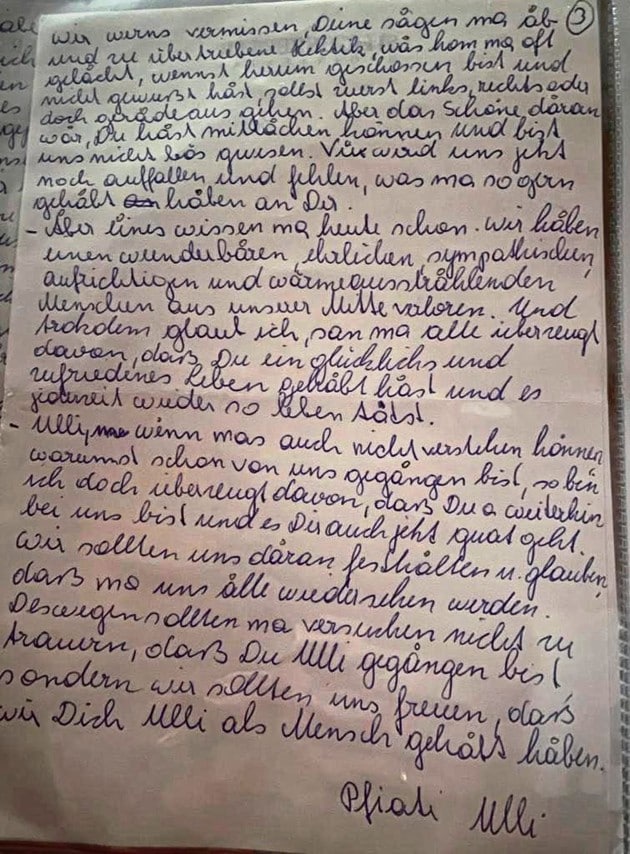 ③
wir werns vermissen, Deine sågen ma åb-
und zu übertriebene Hektik, wås hom ma oft
gelåcht, wennst herum geschossen bist und
nicht gewußt håst, sollst zuerst links, rechts oder
doch geradeaus gehen. Aber das Schöne dåran
wår, Du håst mitlåchen können und bist
uns nicht bös gwesen. Vü wird uns jetzt
noch auffallen und fehlen, was ma so gern
gehåbt håben an Dir.
- Aber eines wissen ma heute schon. Wir håben
einen wunderbåren, ehrlichen, sympathischen,
aufrichtigen und wärmeausstråhlenden
Menschen aus unserer Mitte verloren. Und
trotzdem glaub ich, san ma alle überzeugt
davon, daß Du ein glücklichs und
zufriedenes Leben gehåbt håst und es
jederzeit wieder so leben tåtst.
- Ulli, wenn mas auch nicht verstehen können
warumst schon von uns gegången bist, so bin
ich doch überzeugt davon, daß Du a weiterhin
bei uns bist und es Dir auch jetzt guat geht.
Wir sollten uns dåran festhålten u. glauben,
daß ma uns ålle wiedersehen werden.
Deswegen sollten ma versuchen nicht zu
trauern, daß Du Ulli gegången bist
sondern wir sollten uns freuen, daß
wir Dich Ulli als Mensch gehåbt håben.
Pfiati Ulli